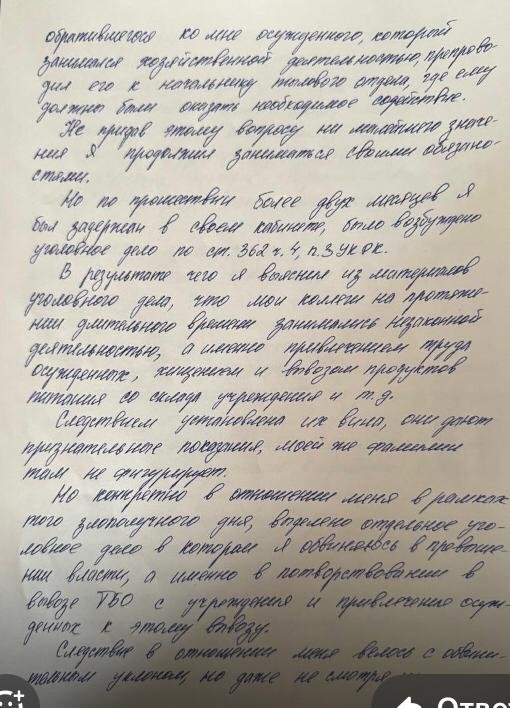 обратившегося ко мне осужденного, который
занимался хозяйственной деятельностью, препрово-
дил его к начальнику тылового отдела, где ему
должны были оказать необходимое содействие.
Не придав этому вопросу ни малейшего значе-
ния я продолжил заниматься своими обязано-
стями.
Но по прошествии более двух месяцев я
был задержан в своем кабинете, было возбуждено
уголовное дело по ст. 362 ч. 4, п. 3 УК РК.
В результате чего я выяснил из материалов
уголовного дела, что мои коллеги на протяже-
нии длительного времени занимались незаконной
деятельностью, а именно привлечением труда
осужденных, хищением и вывозом продуктов
питания со склада учреждения и т.д.
Следствием установлена их вина, они дают
признательные показания, моей же фамилии
там не фигурирует.
Но конкретно в отношении меня в рамках
того злополучного дня, выделено отдельное уго-
ловное дело в котором я обвиняюсь в превыше-
нии власти, а именно в потворствовании в
вывозе ТБО с учреждения и привлечения осуж-
денных к этому вывозу.
Следствие в отношении меня велось с обвини-
тельным уклоном, но даже не смотря
Ответ